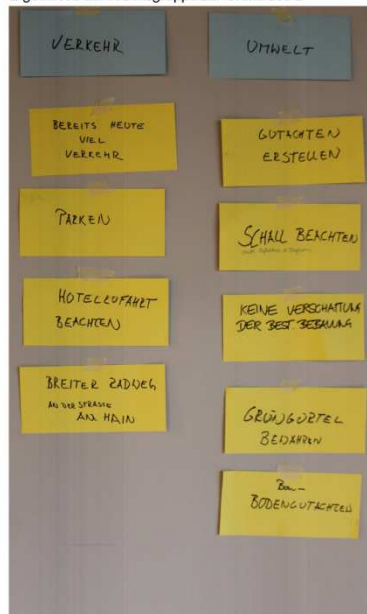 VERKEHR
BEREITS HEUTE
VIEL
VERKEHR
PARKEN
HOTELZUFAHRT
BEACHTEN
BREITER RADWEG
AN DER STRASSE
AM HAIN
UMWELT
GUTACHTEN
ERSTELLEN
SCHALL BEACHTEN
KEINE VERSCHATTUNG
DER BEST. BEBAUUNG
GRÜNGÜRTEL
BEWAHREN
BODENGUTACHTEN